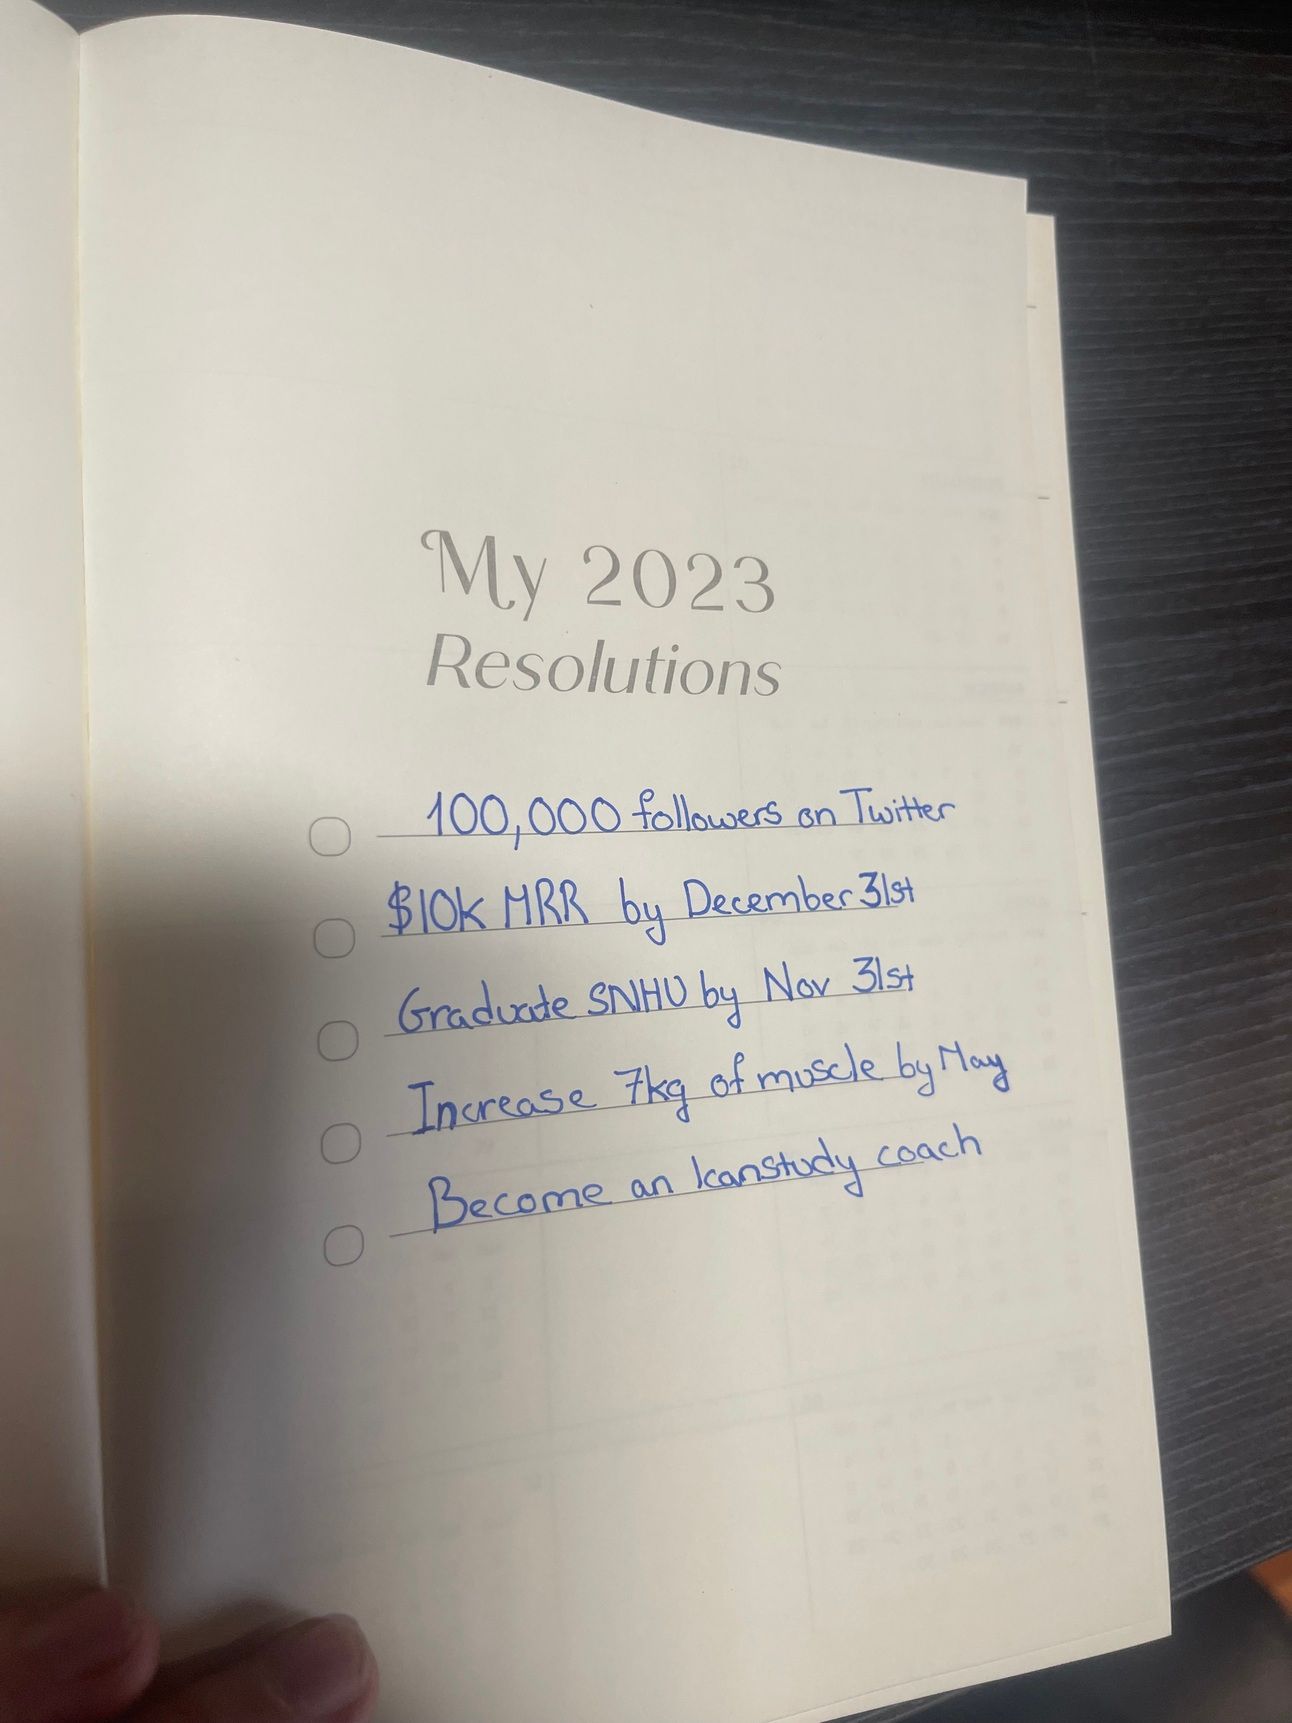 My 2023
Resolutions
100,000 followers on Twitter
$10K MRR by December 31st
Graduate SNHU by Nov 31st
Increase 7kg of muscle by May
Become an Icanstudy coach